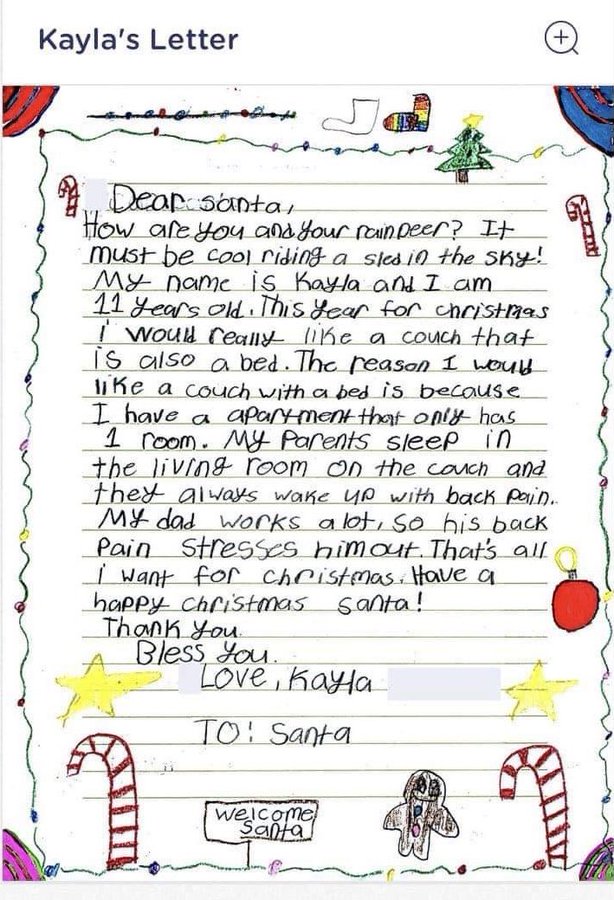 Kayla's Letter
Dear santa,
How are you and your rainDeer? It
must be cool riding a sled in the sky!
My name is Kayla and I am
11 years old. This year for christmas
i would really like a couch that
is also a bed. The reason I would
like a couch with a bed is because
I have a apartment that only has
1 room. My Parents sleep in
the living room on the couch and
they always wake up with back pain.
My dad works a lot, so his back
pain stresses him out. That's all
i want for christmas. Have a
happy christmas santa!
Thank you.
Bless you.
Love, Kayla
TO: Santa
welcome
Santa